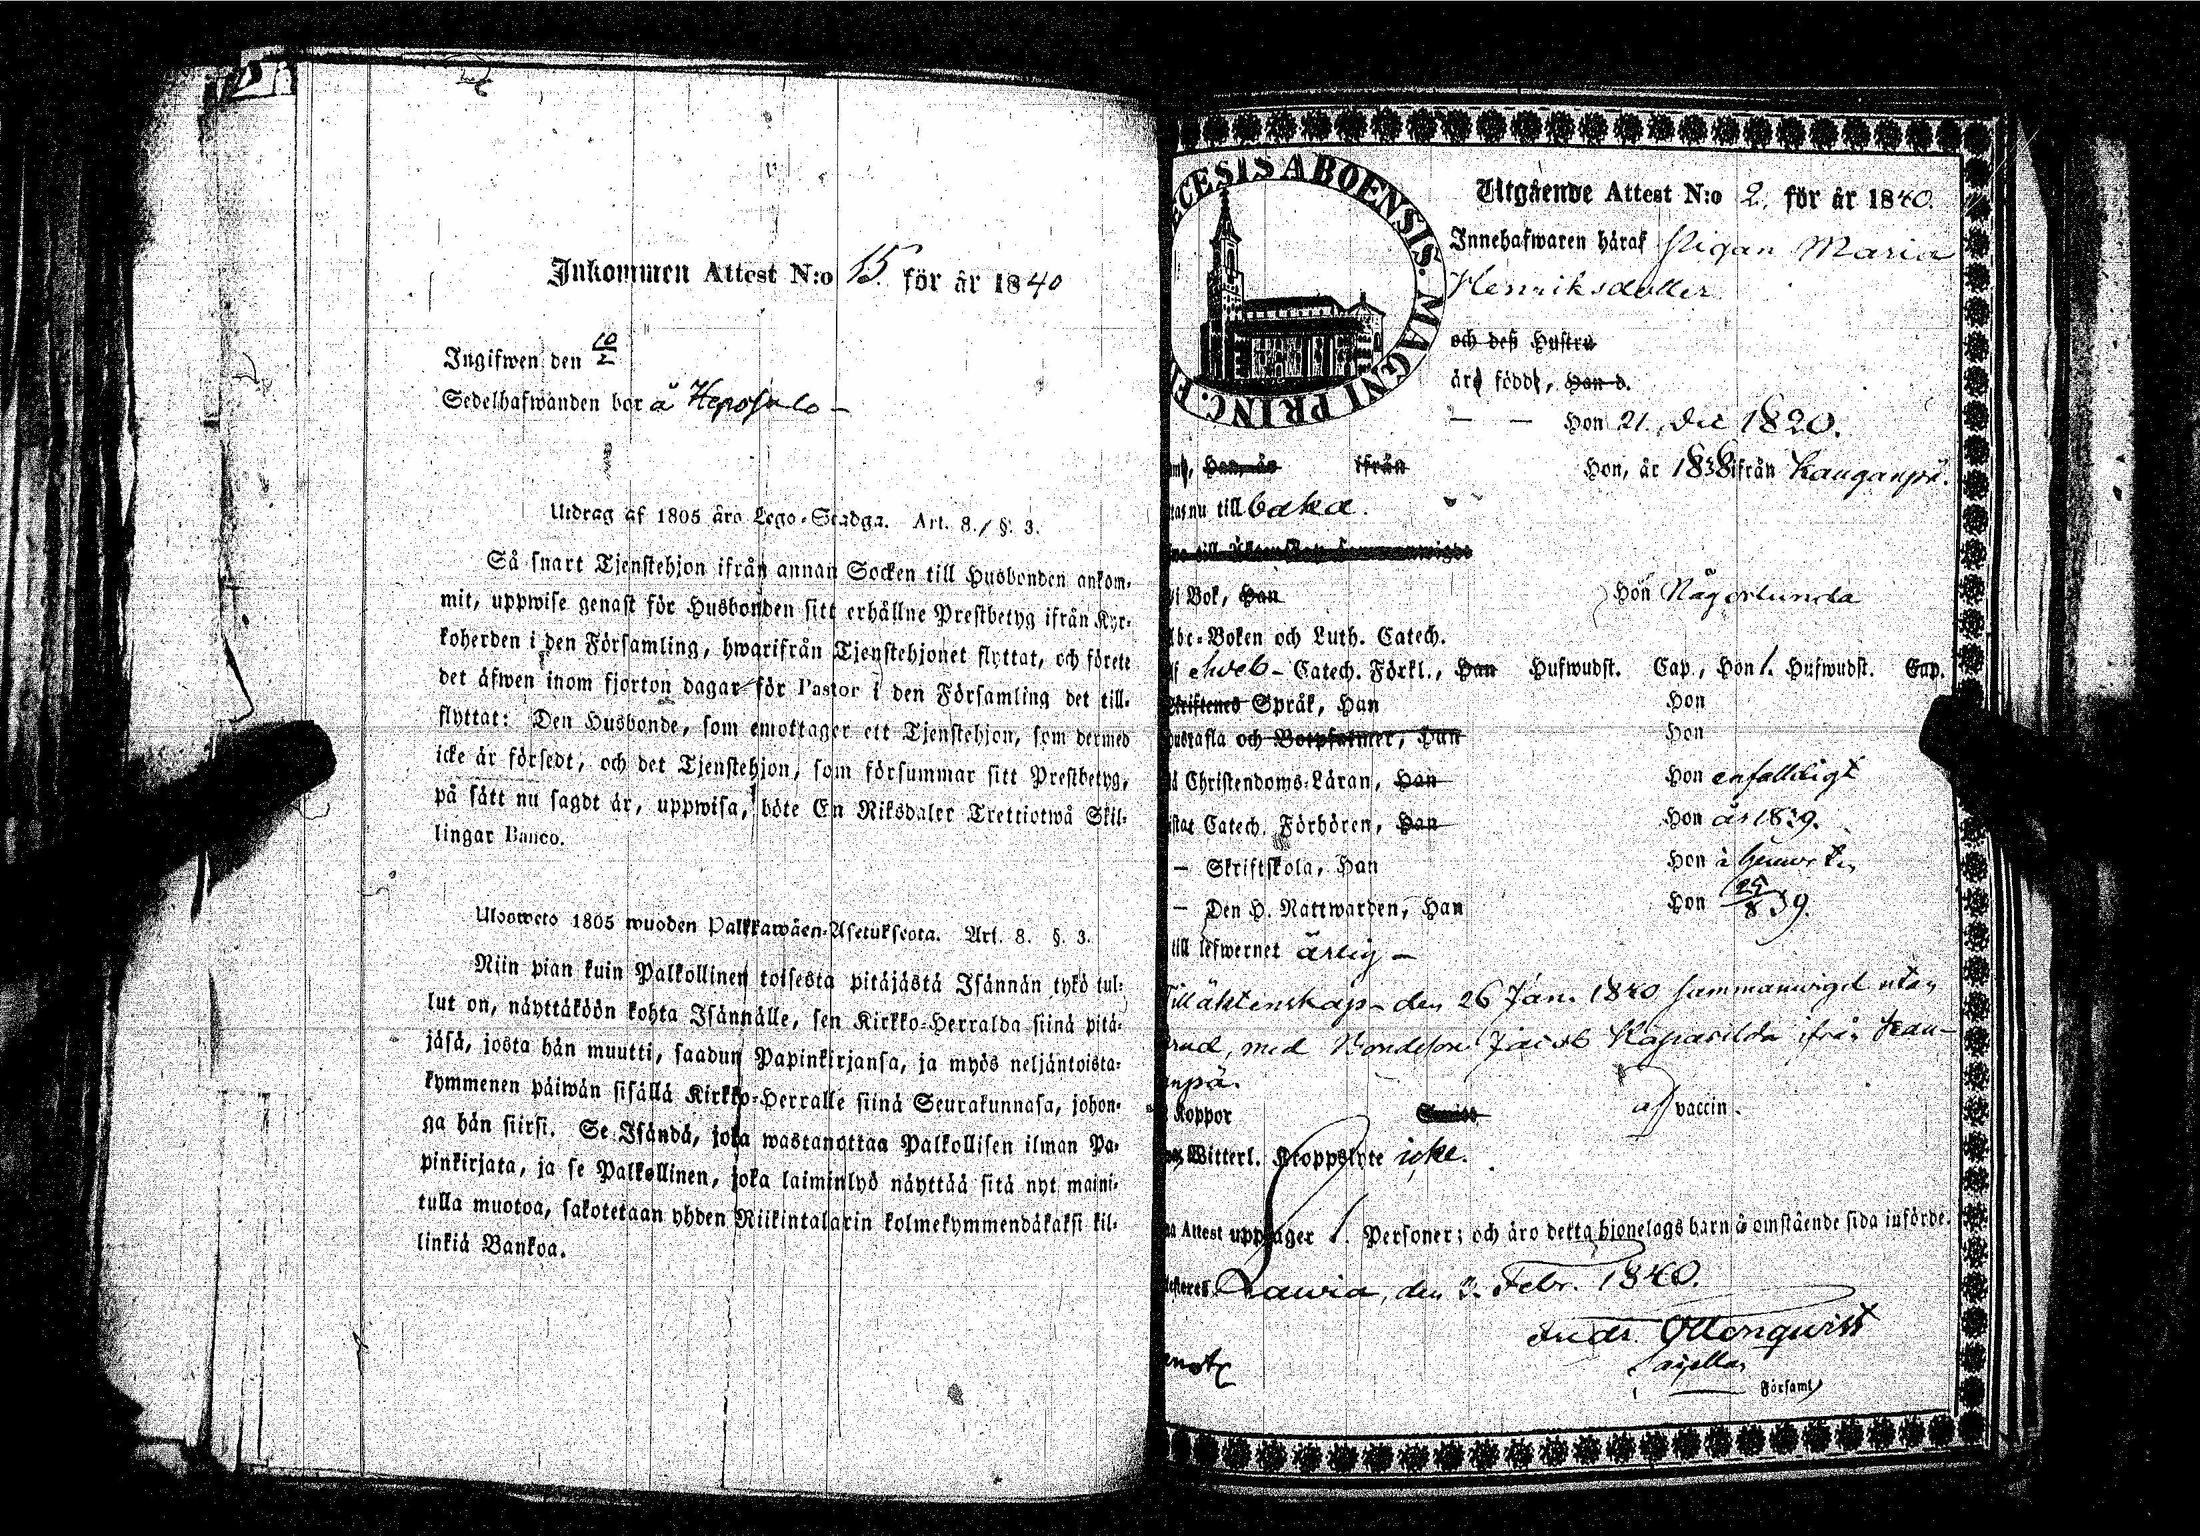 Inkommen Attest N:o 15. för år 1840
Ingifwen den 10/2
Sedelhafwanden bor å Heposalo –
Utdrag af 1805 års Lego-Stadga. Art. 8. §. 3.
Så snart Tjenstehjon ifrån annan Socken till Husbonden ankom-
mit, uppwise genast för Husbonden sitt erhållne Prestbetyg ifrån Kyr-
koherden i den Församling, hwarifrån Tjenstehjonet flyttat, och förete
det äfwen inom fjorton dagar för Pastor i den Församling det till-
flyttat: Den Husbonde, som emottager ett Tjenstehjon, som dermed
icke är försedt, och det Tjenstehjon, som försummar sitt Prestbetyg,
på sätt nu sagdt är, uppwisa, böte En Riksdaler Trettiotwå Skil-
lingar Banco.
Ulosweto 1805 wuoden Palkkawäen-Asetuksesta. Art. 8. §. 3.
Niin pian kuin Palkollinen toisesta pitäjästä Isännän tykö tul-
lut on, näyttäköön kohta Isännälle, sen Kirkko-Herralda siinä pitä-
jäsä, josta hän muutti, saadun Papinkirjansa, ja myös neljäntoista-
kymmenen päiwän sisällä Kirkko-Herralle siinä Seurakunnasa, johon-
ga hän siirsi. Se Isändä, joka wastanottaa Palkollisen ilman Pa-
pinkirjata, ja se Palkollinen, joka laiminlyö näyttää sitä nyt maini-
tulla muotoa, sakotetaan yhden Riikintalarin kolmekymmendäkaksi kil-
linkiä Bankoa.
ECESIS ABOENSIS. MAGNI PRINC.
Utgående Attest N:o 2. för år 1840.
Innehafwaren häraf Pigan Maria
Henriksdotter
och deß Hustru
äro född, Han d.
— — Hon 21. Dec 1820.
Han, år ifrån Hon, år 1838 ifrån Kauganpä.
nu till baka.
i Bok, Han Hon Någorlunda
Abc-Boken och Luth. Catech.
Sveb – Catech. Förkl., Han Hufwudst. Cap., Hon 1. Hufwudst. Cap.
Skriftenes Språk, Han Hon
Hustafla och Botpsalmer, Han Hon
Christendoms-Läran, Han Hon enfaldeligt
Catech. Förhören, Han Hon år 1839.
— Skriftskola, Han Hon
— Den H. Nattwarden, Han Hon 25/8 39.
till lefwernet ärlig –
Till äktenskap den 26 Jan. 1840 sammanvigd utan
brud, med Bondeson Jacob ifrån Kau-
anpä.
Koppor vaccin.
Witterl. Kroppslyte icke.
Attest upptager 1. Personer; och äro detta hjonelags barn å omstående sida införde.
Lauvia, den 3. Febr. 1840.
Andr Ottonqwist
Capellan
Församl